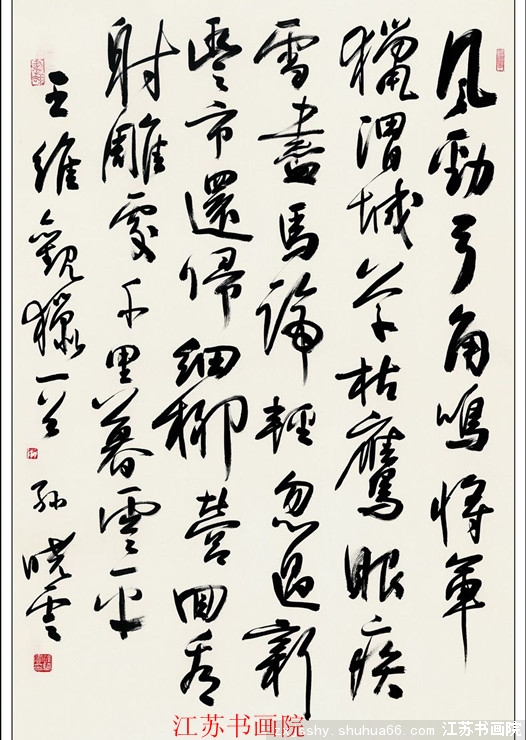 風勁弓角鳴將軍
獵渭城草枯鷹眼疾
雪盡馬蹄輕忽過新
豐市還歸細柳營回看
射雕處千里暮雲平
王維觀獵一首 孫曉雲
江苏书画院
shuhua66.com 江苏书画院